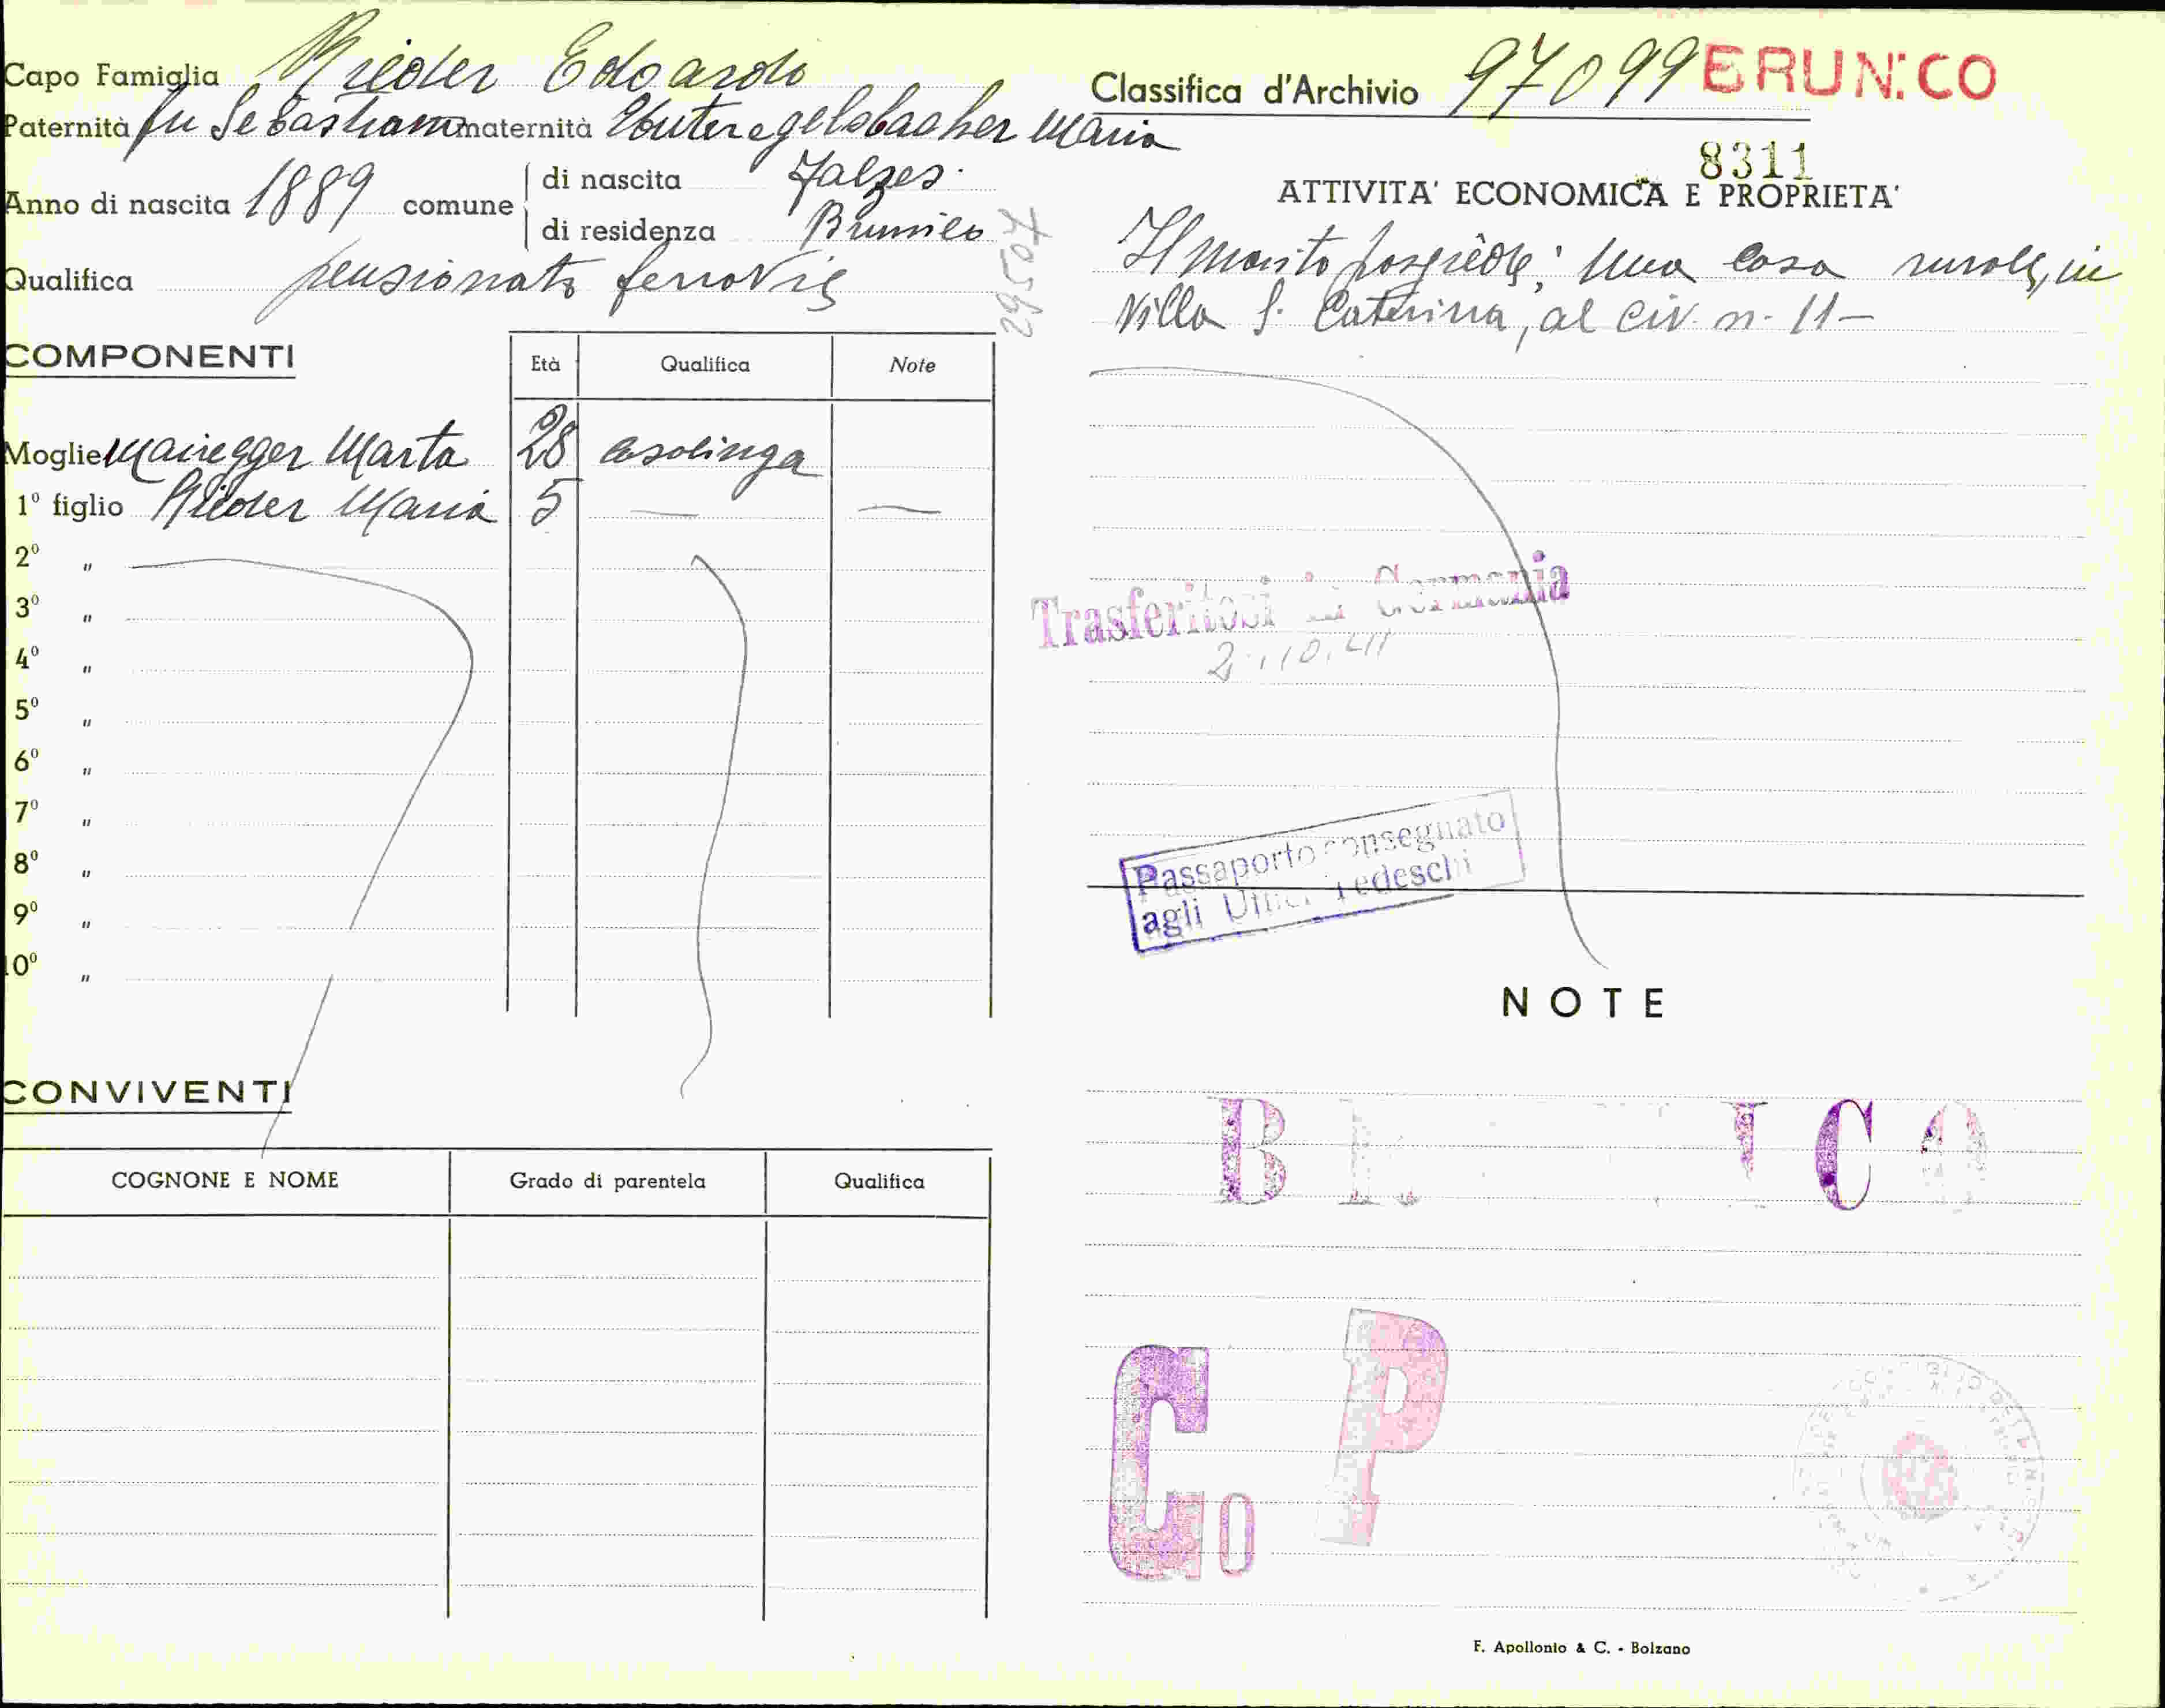 Capo Famiglia Rieder Edoardo
Paternità fu Sebastiano maternità Untergelsbacher Maria
Anno di nascita 1889 comune di nascita Falzes.
di residenza Brunico
Qualifica pensionato ferrovie
29507
COMPONENTI
Età Qualifica Note
Moglie Mairegger Marta 28 casalinga
1º figlio Rieder Maria 5 — —
2º "
3º "
4º "
5º "
6º "
7º "
8º "
9º "
10º "
CONVIVENTI
COGNONE E NOME Grado di parentela Qualifica
Classifica d'Archivio 97099 BRUNICO
8311
ATTIVITA' ECONOMICA E PROPRIETA'
Il marito possiede: Una casa rurale, in
Villa S. Caterina, al civ. n. 11 —
Trasferitosi in Germania
Passaporto consegnato
agli Uffici Tedeschi
NOTE
BRUNICO
Go P
F. Apollonio & C. - Bolzano